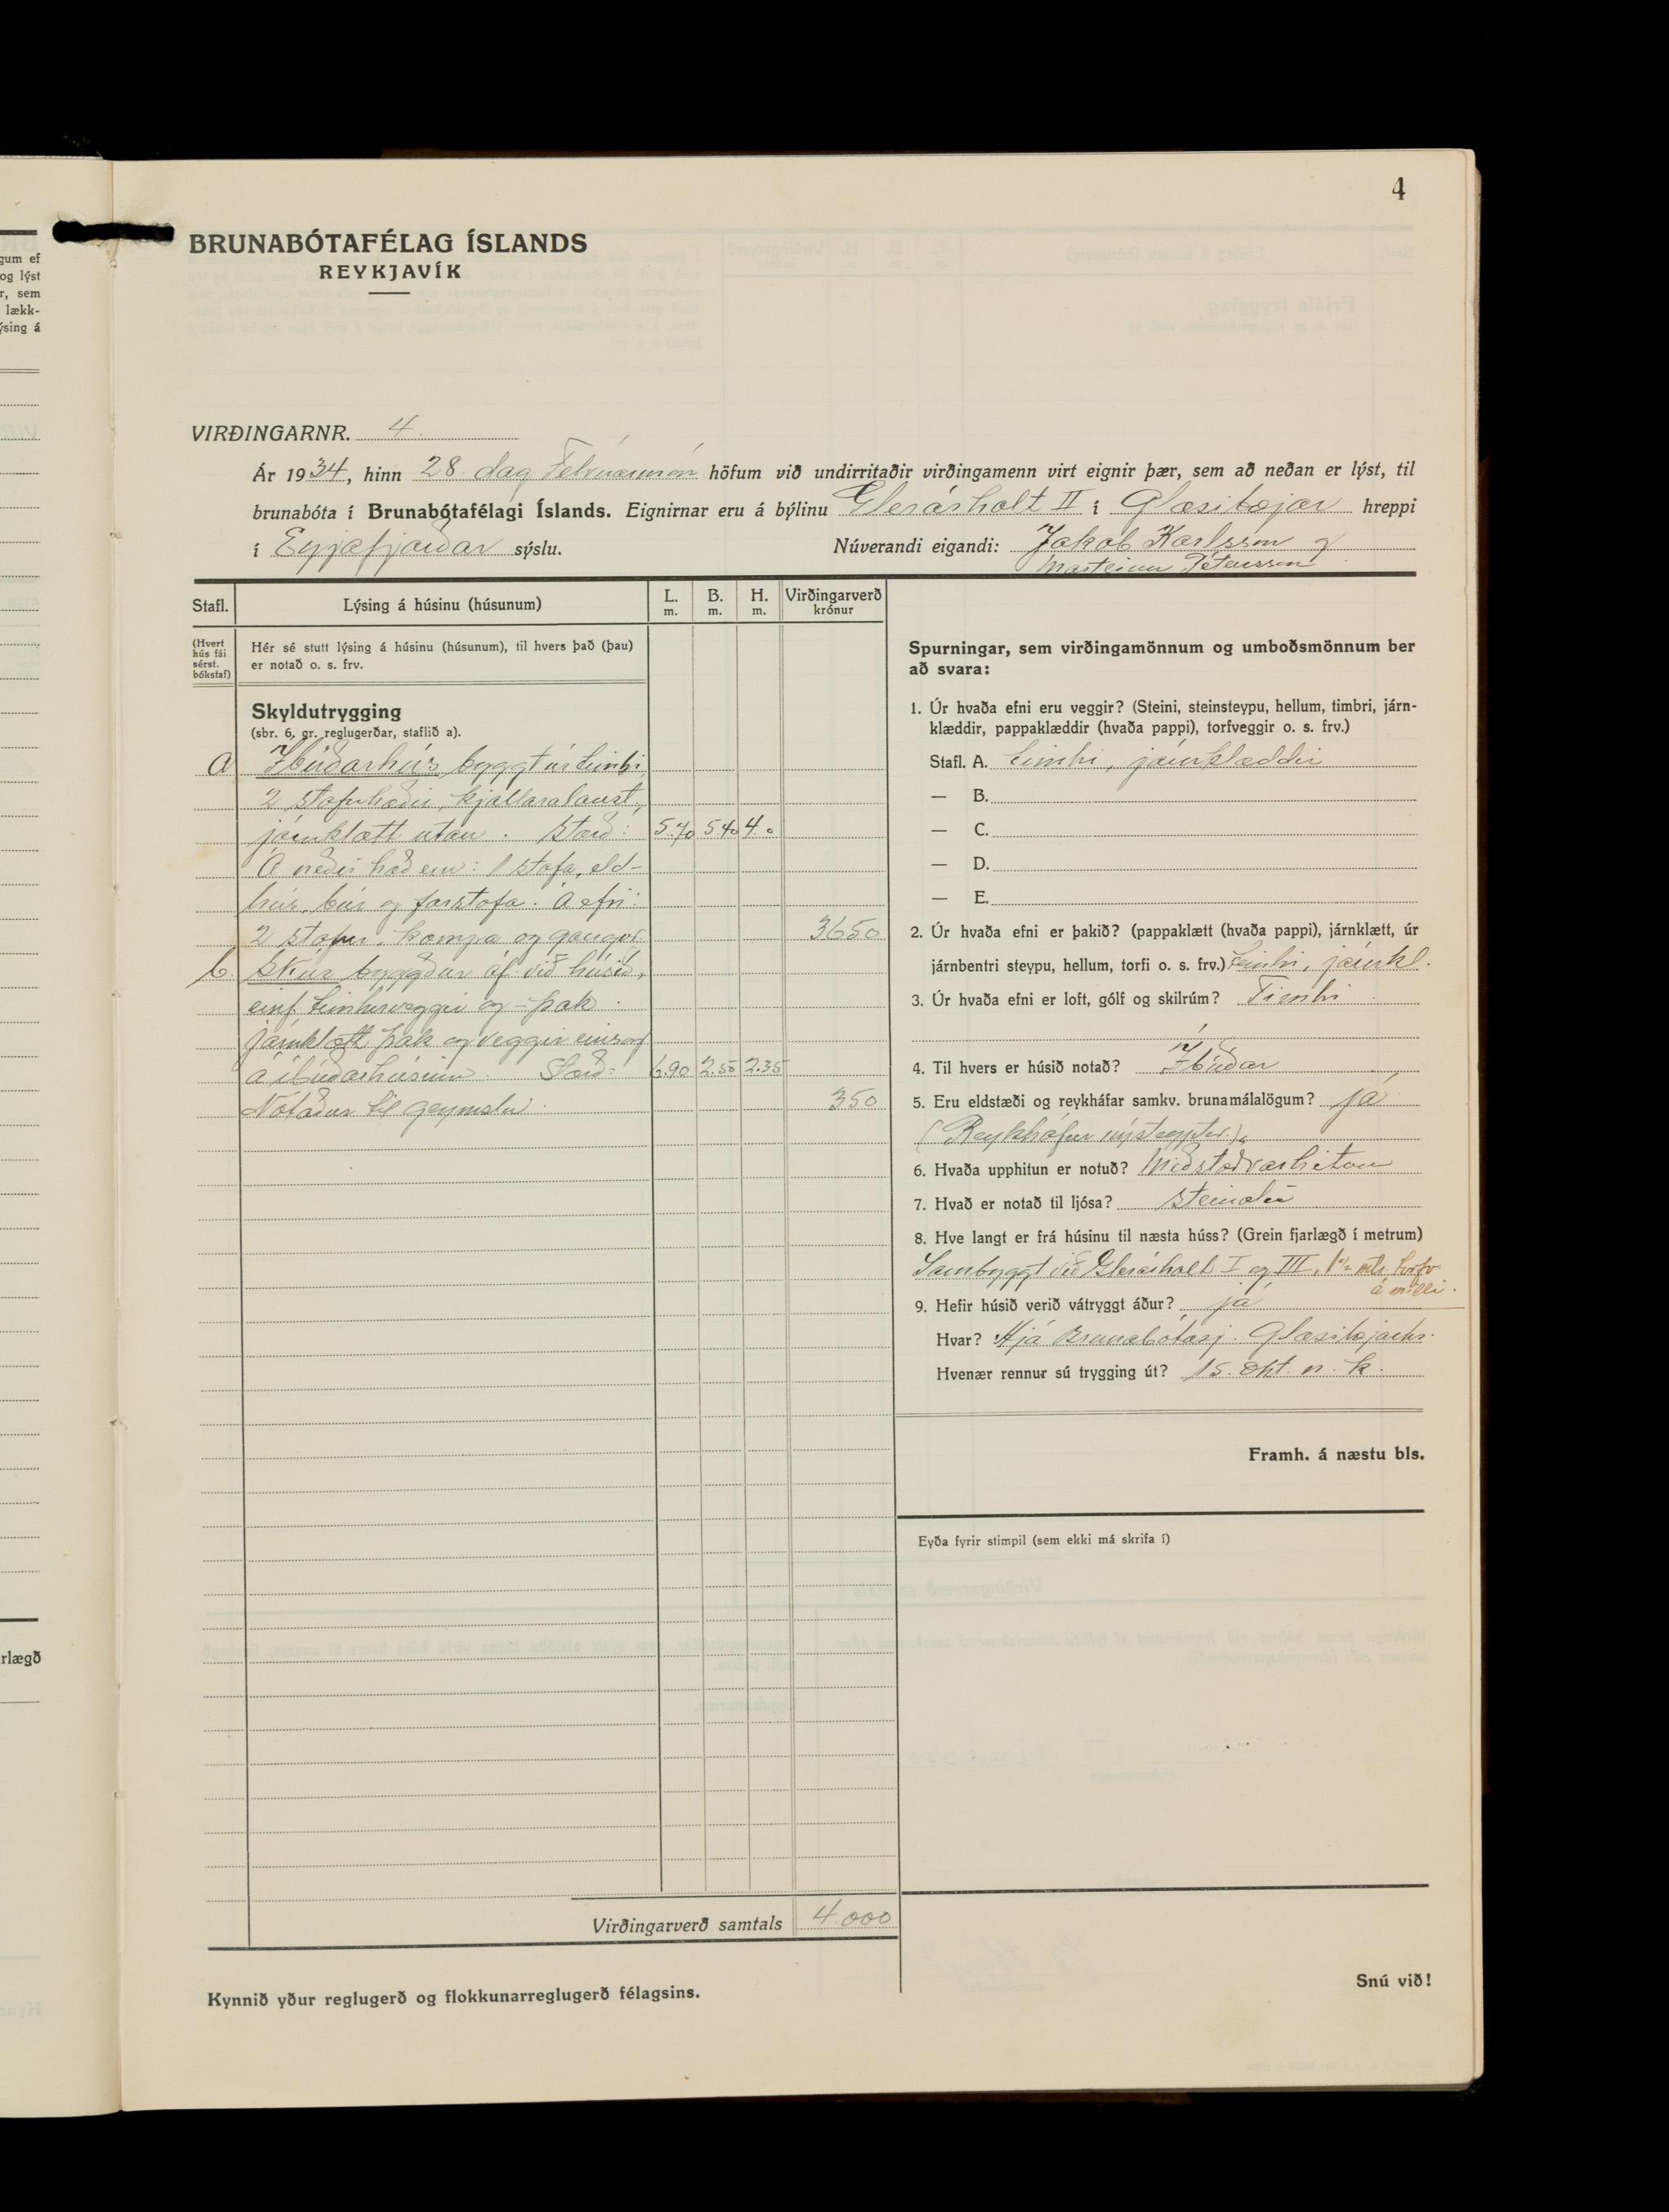 4
BRUNABÓTAFÉLAG ÍSLANDS
REYKJAVÍK
VIRÐINGARNR. 4.
Ár 1934, hinn 28. dag Febrúarmán höfum við undirritaðir virðingamenn virt eignir þær, sem að neðan er lýst, til
brunabóta í Brunabótafélagi Íslands. Eignirnar eru á býlinu Glerárholt II í Glæsibæjar hreppi
í Eyjafjarðar sýslu.
Núverandi eigandi: Jakob Karlsson og
Marteinn Pétursson
Stafl.
Lýsing á húsinu (húsunum)
L. m.
B. m.
H. m.
Virðingarverð krónur
(Hvert hús fái sérst. bókstaf)
Hér sé stutt lýsing á húsinu (húsunum), til hvers það (þau)
er notað o. s. frv.
Skyldutrygging
(sbr. 6. gr. reglugerðar, staflið a).
a Íbúðarhús byggt úr timbri,
2 stofuhæðir, kjallaralaust,
járnklætt utan. Stærð: 5.70 5.40 4.0
Á neðri hæð eru: 1 stofa, eld-
hús, búr og forstofa. Á efri:
2 stofur, kompa og gangur. 3650
b. Skúr byggður áf. við húsið,
einf. timburveggir og - þak.
Járnklætt þak og veggir eins og
á íbúðarhúsinu. Stærð: 6.90 2.50 2.35
Notaður til geymslu. 350
Virðingarverð samtals 4.000
Kynnið yður reglugerð og flokkunarreglugerð félagsins.
Spurningar, sem virðingamönnum og umboðsmönnum ber
að svara:
1. Úr hvaða efni eru veggir? (Steini, steinsteypu, hellum, timbri, járn-
klæddir, pappaklæddir (hvaða pappi), torfveggir o. s. frv.)
Stafl. A. timbri, járnklæddir
— B.
— C.
— D.
— E.
2. Úr hvaða efni er þakið? (pappaklætt (hvaða pappi), járnklætt, úr
járnbentri steypu, hellum, torfi o. s. frv.) Timbri, járnkl.
3. Úr hvaða efni er loft, gólf og skilrúm? Timbri
4. Til hvers er húsið notað? Íbúðar
5. Eru eldstæði og reykháfar samkv. brunamálalögum? já
(Reykháfur nýsteyptur).
6. Hvaða upphitun er notuð? Miðstöðvarhitun
7. Hvað er notað til ljósa? steinolía
8. Hve langt er frá húsinu til næsta húss? (Grein fjarlægð í metrum)
Sambyggt við Glerárholt I og III, mtr. torfv
á milli.
9. Hefir húsið verið vátryggt áður? já
Hvar? Hjá Brunabótasj. Glæsibæjarhr.
Hvenær rennur sú trygging út? 15. okt. n. k.
Framh. á næstu bls.
Eyða fyrir stimpil (sem ekki má skrifa í)
Snú við!
gum ef
og lýst
r, sem
lækk-
ýsing á
rlægð